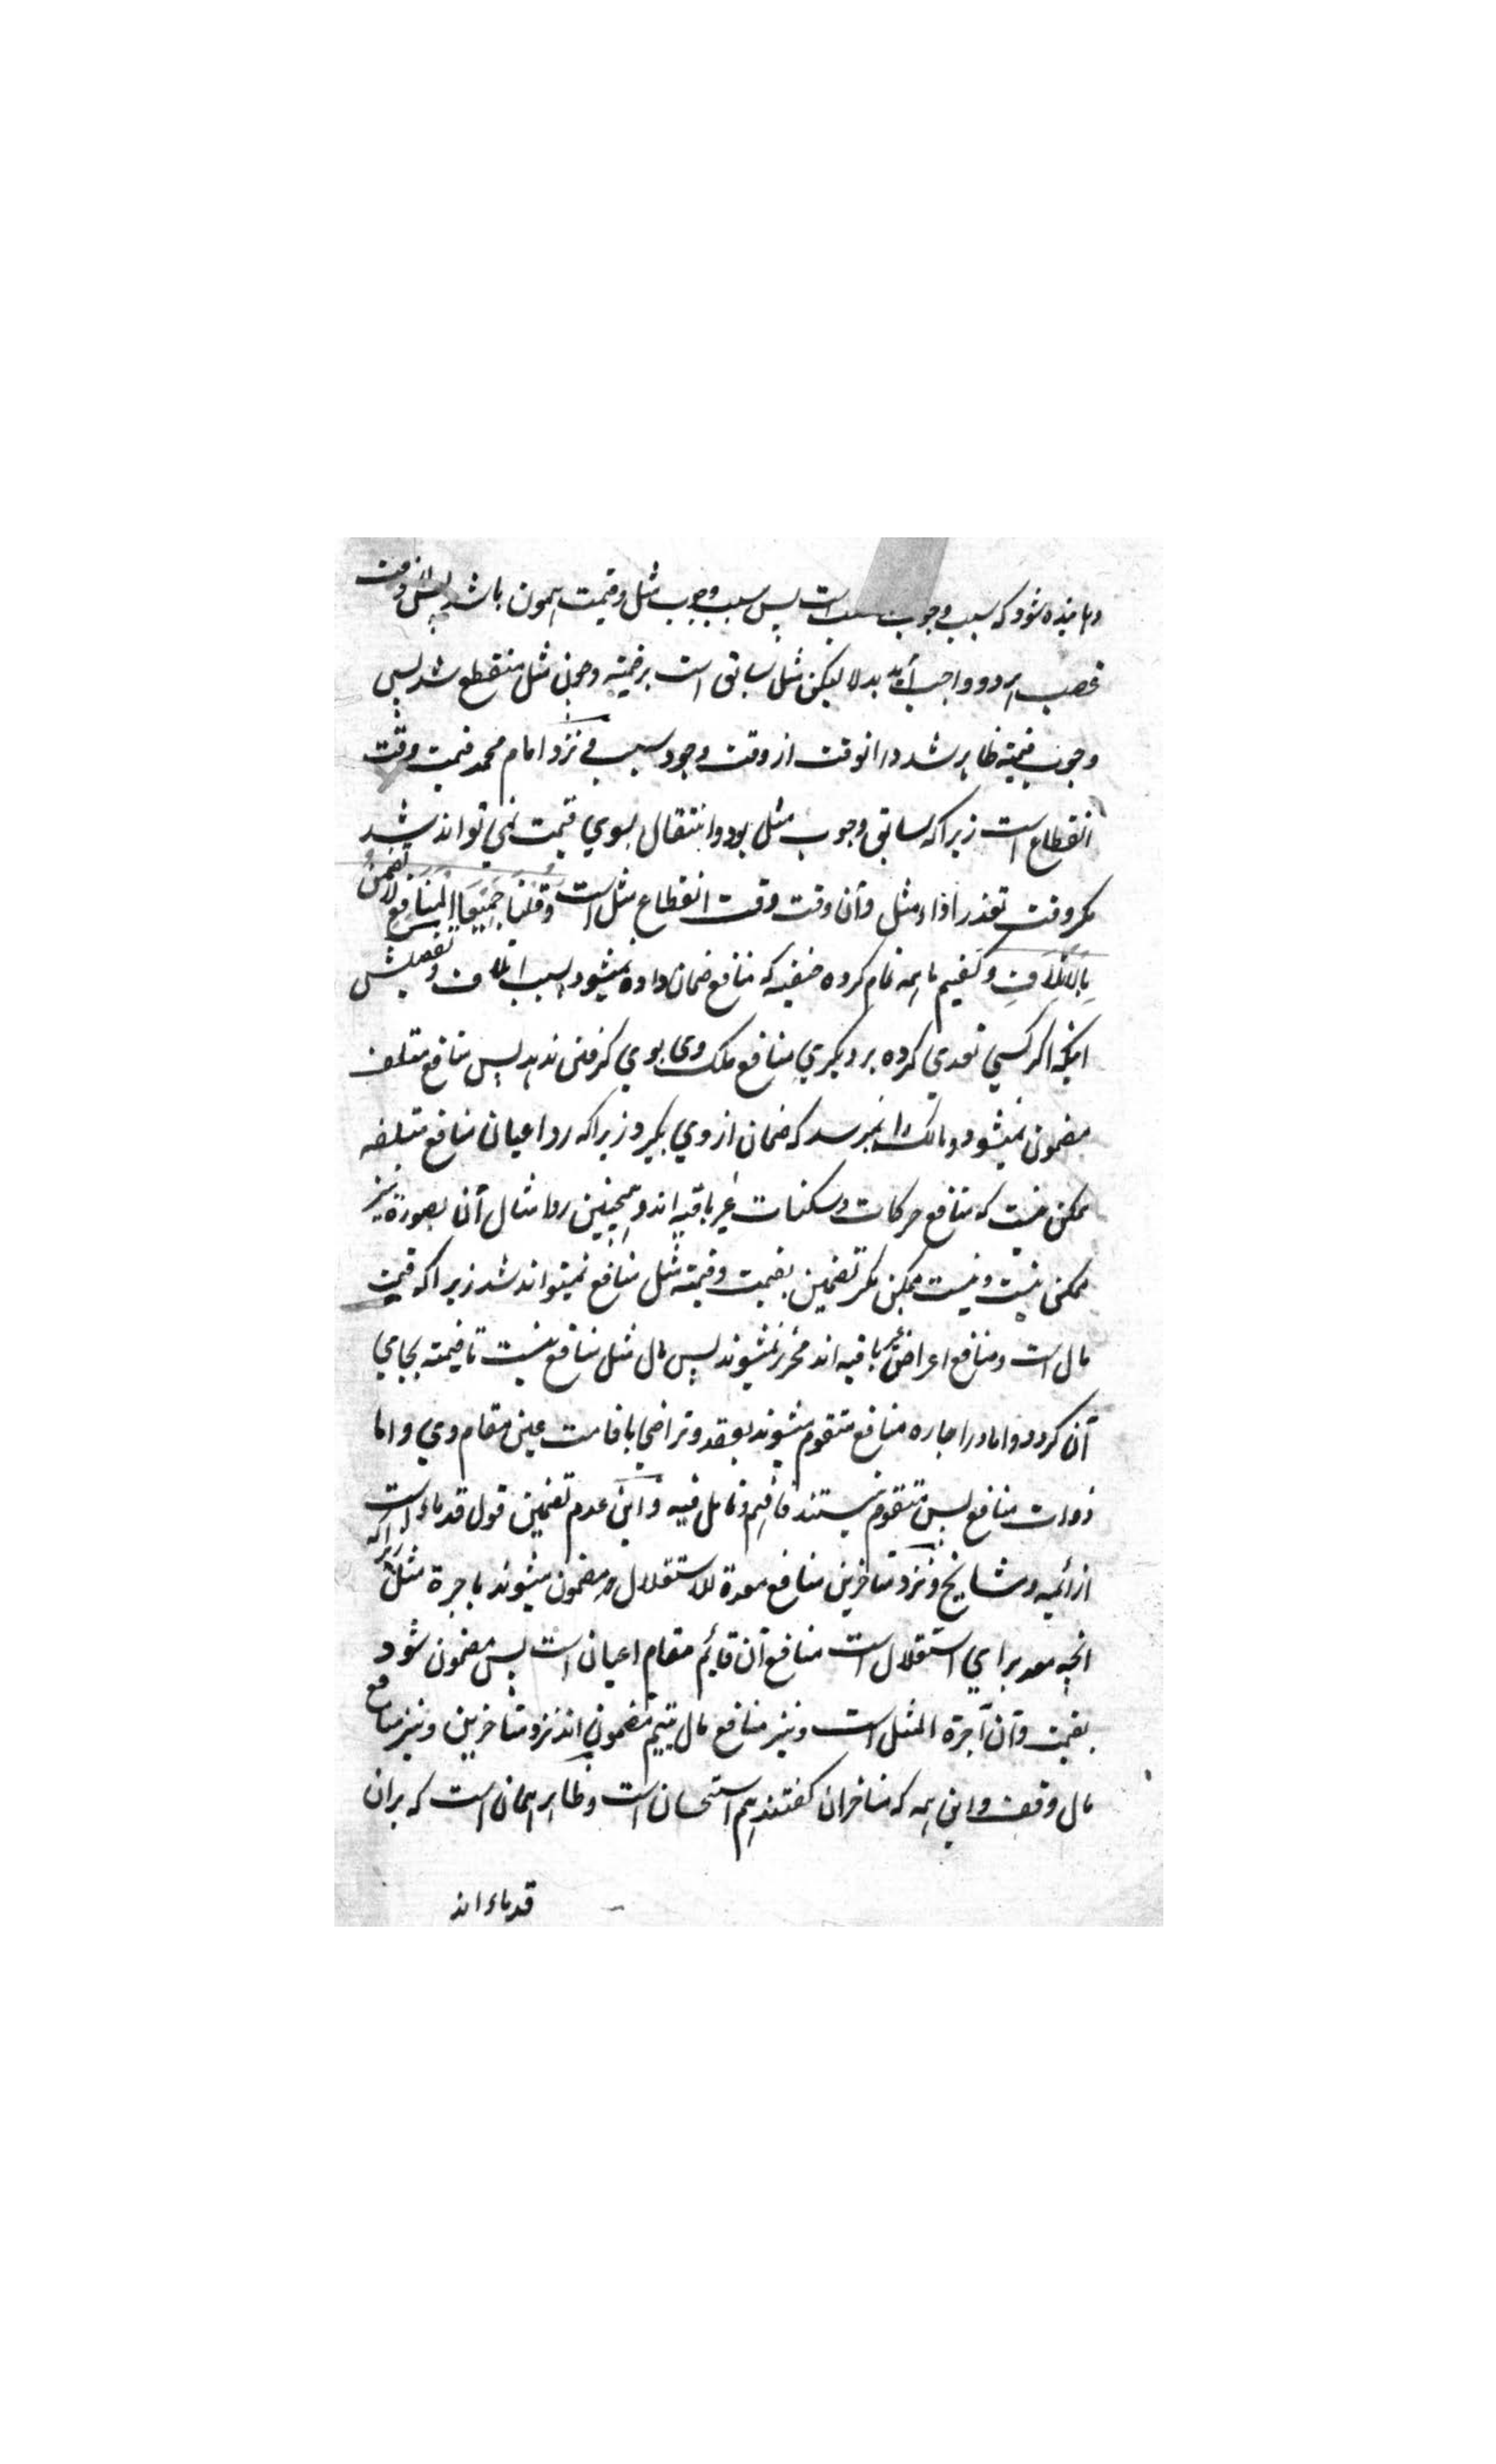 شود که سبب وجوب است پس سبب وجوب مثل و قیمت همون باشد پس وقت
غصب هر دو واجب بدلا لیکن مثل سابق است بر قیمته و چون مثل منقطع شد پس
وجوب قیمته ظاهر شد درانوقت از وقت وجود سبب فی نزد امام محمد قیمت وقت
انقطاع است زیراکه سابق وجوب مثل بود و انتقال بسوي قیمت نمي تواند شد
مکر وقت تعذر اداء مثل و آن وقت وقت انقطاع مثل است وَقُلْنَا جَمِيْعًا اَلْمَنَافِعُ لَا تُضْمَنُ
بِالْاِتْلَافِ و کفتیم ما همه تمام کروه حنفیه که منافع ضمان داده نمیشود بسبب اتلاف و تفصیلش
اینکه اکر کسي تعدي کرده بر دیکري منافع ملک وی بوي کرفتن ندهد پس منافع متلف
مضمون نمیشود و مالک را نمیرسد که ضمان از وي بکیرد زیراکه رد اعیان منافع متلفه
ممکن نیست که منافع حرکات و سکنات غیر باقیه اند و همچنین رد امثال آنها بصورة نیز
ممکن نیست و نیست ممکن مکر تضمین بقیمت و قیمته مثل منافع نمیتواند شد زیراکه قیمت
مال است و منافع اعراض غیر باقیه اند محرز نمیشوند پس مال مثل منافع نیست تا قیمته بجاي
آن کردد و اما در اجاره منافع متقوم میشوند بعقد و تراضي باقامت عین مقام وي و اما
ذوات منافع پس متقوم نیستند فافهم و تامل فیه و این عدم تضمین قول قدماء است
از ائمه و مشایخ و نزد متاخرین منافع معدة للاستقلال مضمون میشوند باجرة مثل زیراکه
انچه معد براي استقلال است منافع آن قایم مقام اعیان است پس مضمون شود
بقیمت و آن اجرة المثل است و نیز منافع مال یتیم مضمون اند نزد متاخرین و نیز منافع
مال وقف و این همه که متاخران کفتند هم استحسان است و ظاهر همان است که بران
قدماء اند